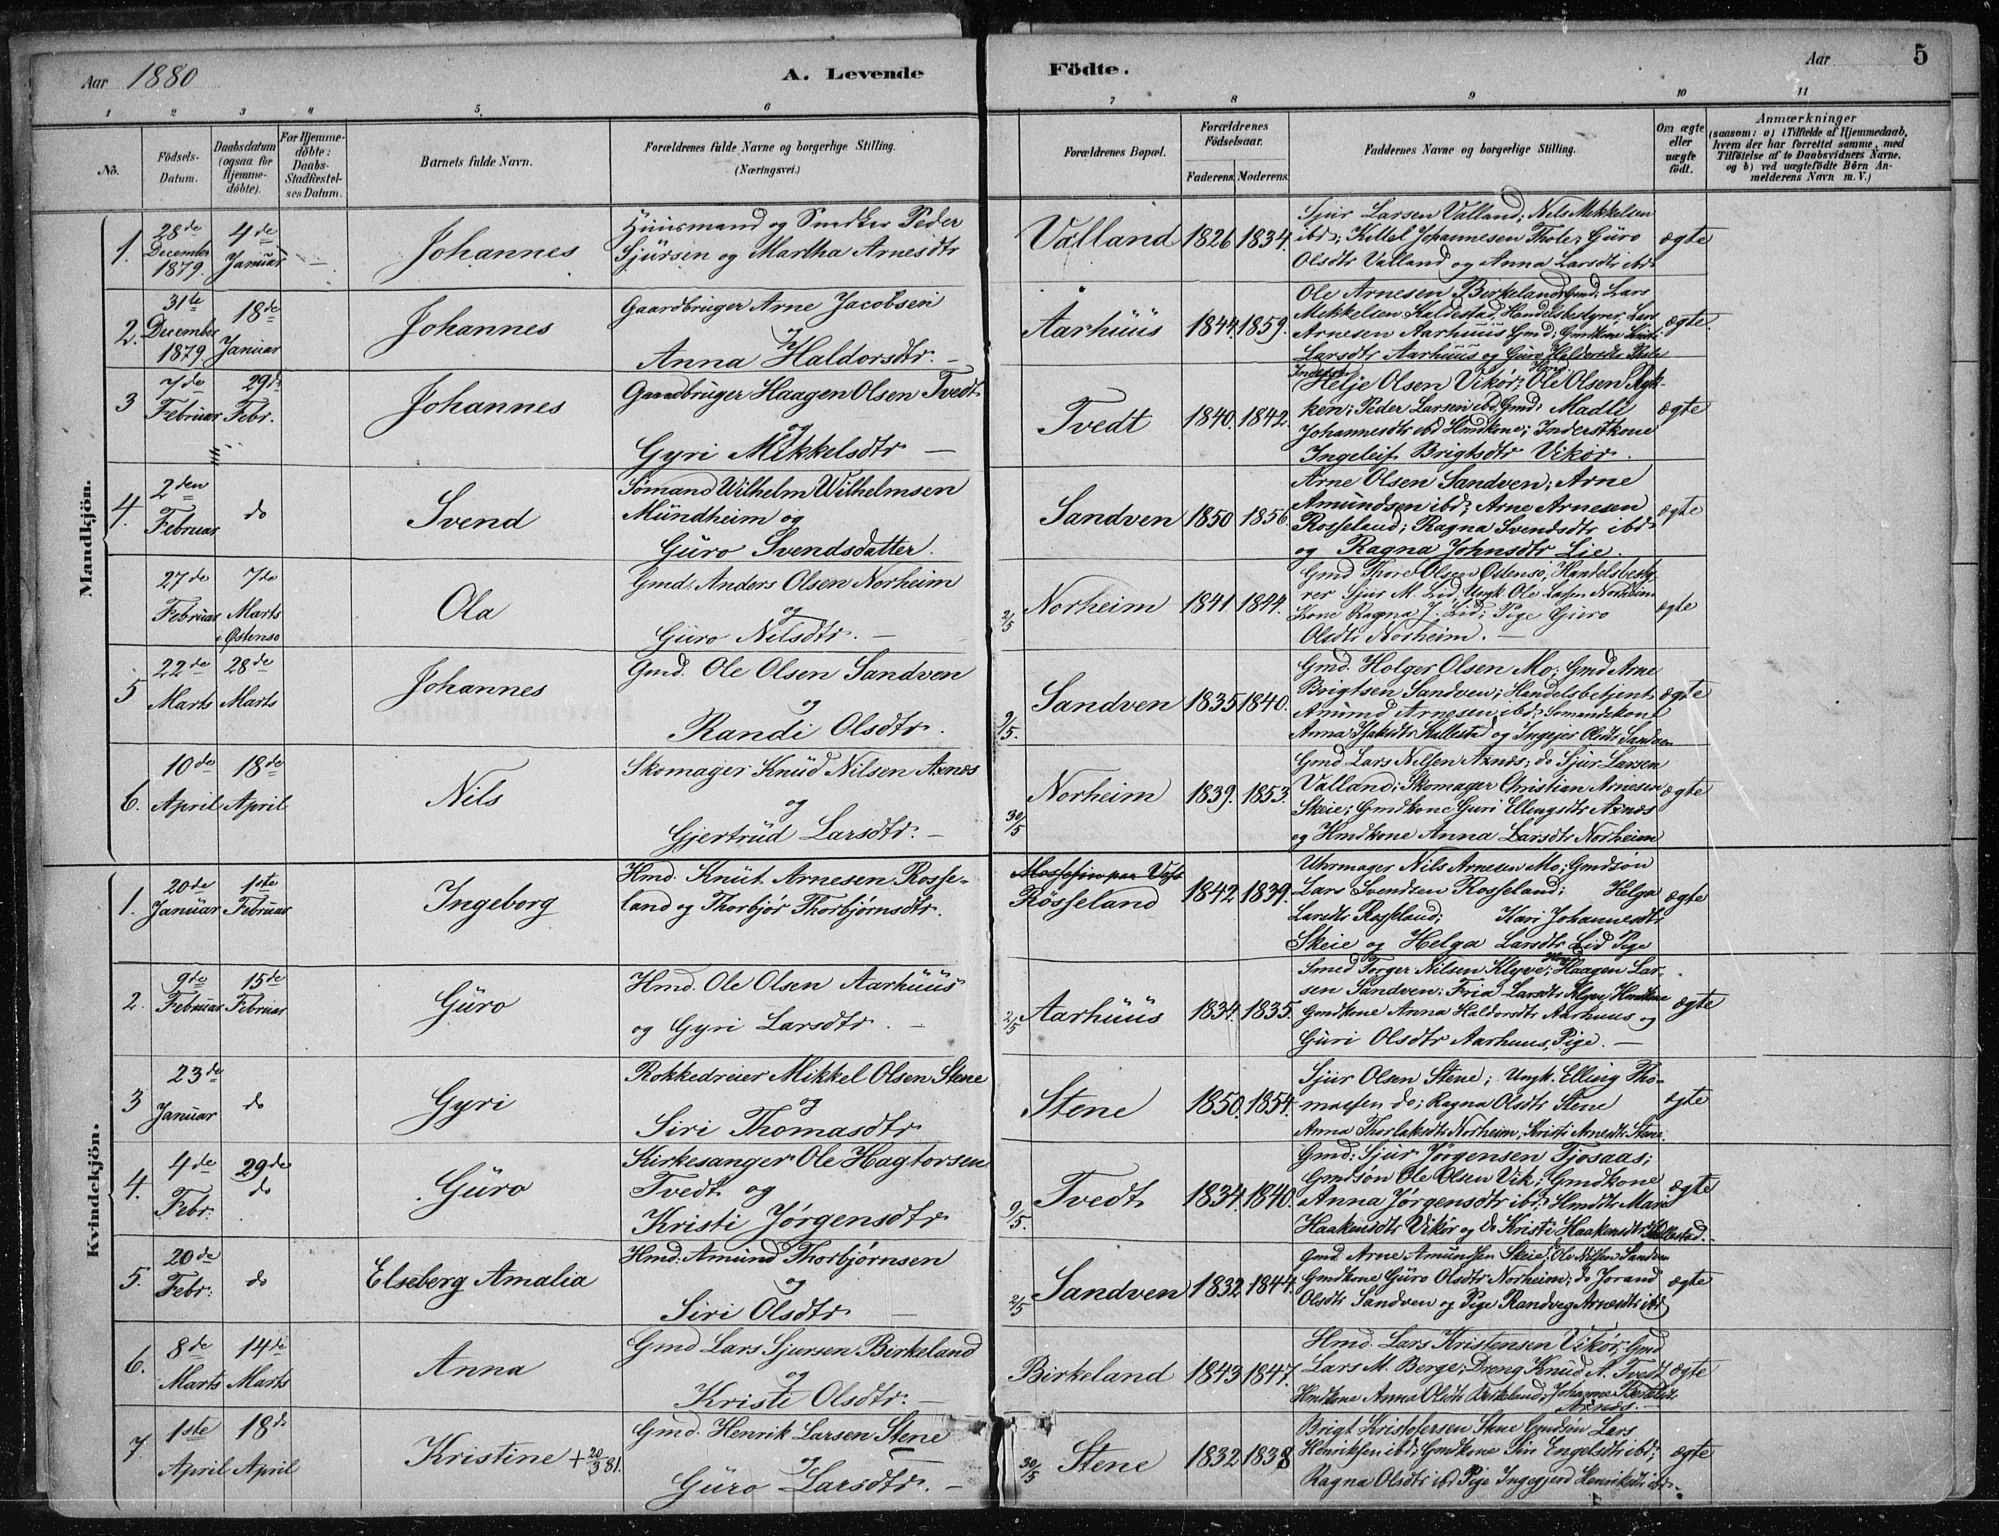 Aar 1880
A. Levende
Födte.
Aar
5
1 2 3 4 5 6 7 8 9 10 11
No.
Födsels-Datum.
Daabsdatum (ogsaa for Hjemme-döbte).
For Hjemme-döbte: Daabs-Stadfæstel-ses Datum.
Barnets fulde Navn.
Forældrenes fulde Navne og borgerlige Stilling.
(Næringsvei.)
Forældrenes Bopæl.
Forældrenes Födselsaar.
Faderens. Moderens.
Faddernes Navne og borgerlige Stilling.
Om ægte eller uægte födt.
Anmærkninger
(saasom: a) i Tilfælde af Hjemmedaab,
hvem der har forrettet samme, med
Tilföielse af to Daabsvidners Navne,
og b) ved uægtefödte Börn An-
melderens Navn m. V.)
Mandkjön.
1. 28de December 1879. 4de Januar – Johannes
Huusmand og Smed Peder
Sjursen og Martha Arnesdtr
Valland 1826 1834.
Sjur Larsen Valland; Nils Mikkelsen
ibd; Kittel Johannesen Thote; Guro
Olsdtr Valland og Anna Larsdtr ibd.
ægte
2. 31te December 1879. 18de Januar Johannes
Gaardbruger Arne Jacobsen
Anna Haldorsdtr. –
Aarhuus 1844. 1859.
Ole Arnesen Birkeland Gmd; Lars
Mikkelsen Kaldestad, Handelsbestyrer; Lars
Arnesen Aarhuus Gmd; Gmdkone
Larsdtr Aarhuus og Guro Haldorsdtr
ægte.
3 7de Februar 29de Febr. Johannes
Gaardbruger Haagen Olsen Tvedt
og
Gyri Mikkelsdtr –
Tvedt 1840. 1842
Inderst Helje Olsen Vikør; Hmd. Ole Olsen Ryk-
ken; Peder Larsen ibd, Gmd; Madli
Johannesdtr ibd Hmdkone; Inderstkone
Ingeleif Brigtsdtr Vikør.
ægte
4. 2den Februar do Svend
Sømand Wilhelm Wilhelmsen
Mundheim og
Guro Svendsdatter.
Sandven 1850 1856.
Arne Olsen Sandven; Arne
Amundsen ibd; Arne Arnesen
Rosseland; Ragna Svendsdtr ibd
og Ragna Johnsdtr Lie.
ægte
27de Februar 7de Marts Østensø Ola
Gmd. Anders Olsen Norheim
og
Guro Nilsdtr. –
2/5 Norheim 1841. 1844.
Gmd Thore Olsen Østensø, Handelsbesty-
rer Sjur M. Lid, Ungk Ole Larsen Norheim
Kone Ragna J. Lid; Pige Guro
Olsdtr Norheim. –
ægte
5 22de Marts 28de Marts Johannes
Gmd. Ole Olsen Sandven
og
Randi Olsdtr.
9/5. Sandven 1835 1840.
Gmd. Holger Olsen Mo; Gmd Arne
Brigtsen Sandven; Handelsbetjent
Amund Arnesen ibd; Sømandskone
Anna Isaksdtr Kallestd og Ingejer Olsdtr Sandven
ægte
6. 10de April 18de April Nils
Skomager Knud Nilsen Axnes
og
Gjertrud Larsdtr. –
30/5 Norheim 1839. 1853.
Gmd Lars Nilsen Axnes; do Sjur Larsen
Valland; Skomager Christian Arnesen
Skeie; Gmdkone Guri Ellingsdtr Axnes
og Hmdkone Anna Larsdtr Norheim
ægte
Kvindekjön.
1. 20de Januar 1ste Februar Ingeborg
Hmd. Knut Arnesen Rosse-
land og Thorbjør Thorbjørnsdtr.
Rosseland 1842 1839.
Uhrmager Nils Arnesen Mo; Gmdsøn
Lars Svendsen Rosseland; Helga
Larsdtr Rosseland; Kari Johannesdtr
Skeie og Helga Larsdtr Lid Pige
ægte
2. 9de Februar 15de Februar Guro
Hmd. Ole Olsen Aarhuus
og Gyri Larsdtr. –
2/5 Aarhuus 1834. 1835.
Smed Torger Nilsen Klyve; Hmd Haagen Lar-
sen Sandven; Fria Larsdtr Klyve Hmdkone
Gmdkone Anna Haldorsdtr Aarhuus og
Guri Olsdtr Aarhuus, Pige. –
ægte
3 23de Januar do Gyri
Rokkedreier Mikkel Olsen Stene
og
Siri Thomasdtr
Stene 1850. 1854.
Sjur Olsen Stene; Ungk. Elling Tho-
massen do; Ragna Olsdtr Stene
Anna Thorlaksdtr Norheim; Kristi Arnesdtr Stene.
ægte
4. 4de Febr. 29de do Guro
Kirkesanger Ole Hagtorsen
Tvedt og
Kristi Jørgensdtr
9/5. Tvedt 1834. 1840.
Gmd: Sjur Jørgensen Tjosaas;
Gmdsøn Ole Olsen Vik; Gmdkone
Anna Jørgensdtr ibd; Hmdtr Mari
Haakensdtr Vikør og do Kristi Haakensdtr Kallestad.
ægte
5. 20de Febr. do Elseberg Amalia
Hmd. Amund Thorbjørnsen
og
Siri Olsdtr –
2/5 Sandven 1832 1844.
Gmd. Arne Amundsen Skeie; Ole Nilsen Sandven
Gmdkone Guro Olsdtr Norheim; do Jorand
Olsdtr Sandven og Pige Randveg Arnesdtr ibd
ægte
6. 8de Marts 14de Marts Anna
Gmd Lars Sjursen Birkeland
og
Kristi Olsdtr. –
Birkeland 1843 1847.
Hmd. Lars Kristensen Vikør, Gmd
Lars M. Berge; Dreng Knud A. Tvedt
Hmdkone Anna Olsdtr Birkeland; Johanna
Axnes. –
ægte
7. 1ste April 18de April Kristine + 20/3 81.
Gmd. Henrik Larsen Stene
og
Guro Larsdtr. –
30/5 Stene 1832 1838
Brigt Kristofersen Stene Gmdsøn Lars
Henriksen ibd; Gmdkone Siri Engelsdtr ibd;
Ragna Olsdtr ibd Pige Ingegjerd Henriksdtr ibd.
ægte